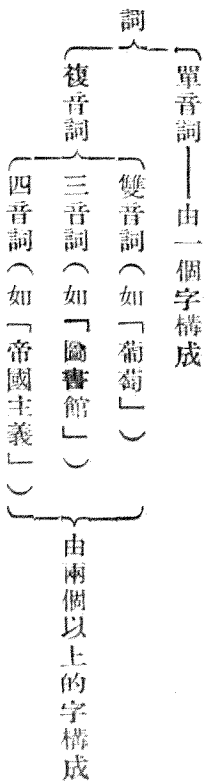 詞
單音詞——由一個字構成
複音詞
雙音詞(如「葡萄」)
三音詞(如「圖書館」)
四音詞(如「帝國主義」)
由兩個以上的字構成